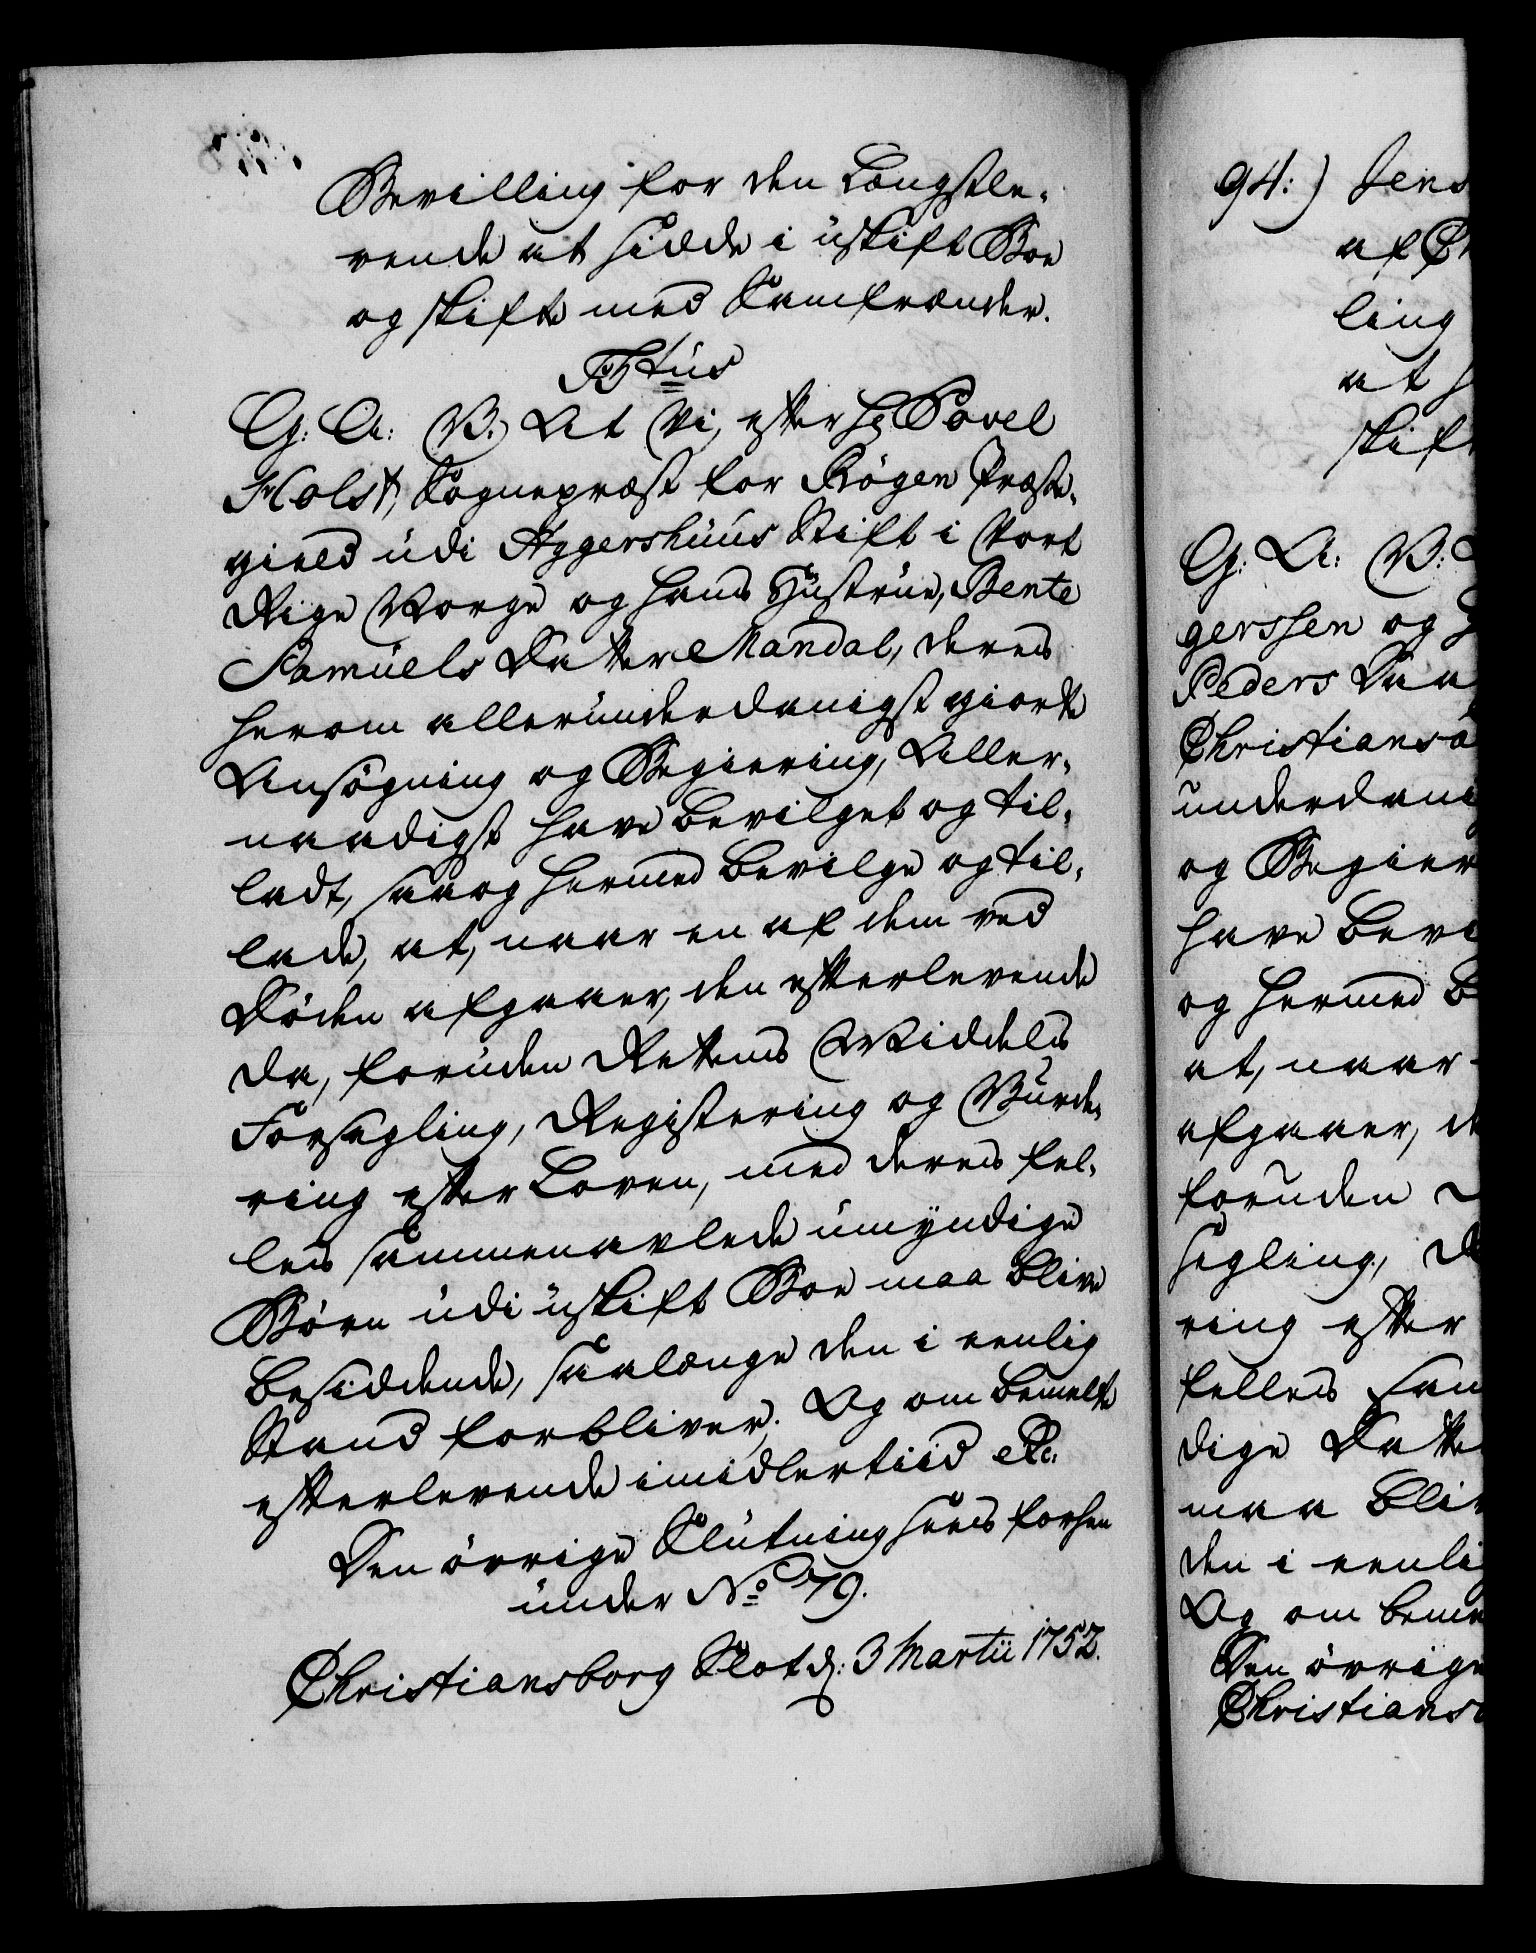 Bevilling for den Længstle-
vende at sidde i uskift Boe
og skifte med Samfrænder.
F5tus
G: A: V: At Vi, efter Hr Povel
Holst, Sognepræst for Røgen Præste-
gield udi Aggershuus Stift i Vort
Rige Norge og hans Hustrue, Bente
Samuels Datter Mandal, deres
herom allerunderdanigst giorte
Ansøgning og Begiering, Aller-
naadigst have bevilget og til-
ladt, saa og hermed bevilge og til-
lade, at, naar en af dem ved
Døden afgaaer, den efterlevende
da, foruden Rettens Middels
Forsegling, Registering og Vurde-
ring efter Loven, med deres fel-
les sammenavlede umyndige
Børn udi uskift Boe maa blive
besiddende, saalænge den i eenlig
Stand forbliver. Og om bemelte
efterlevende imidlertiid etc:
Den øvrige Slutning sees forhen
under No 79.
Christiansborg Slot d: 3 Martii 1752.
94:) Jens
af Ch
ling
at s
skift
G: A: V:
gerssen og H
Peders Daa
Christiansa
underdani
og Begier
have bevi
og hermed b
at, naar
afgaaer, de
foruden
segling, R
ring efter
felles sam
dige Datte
maa bliv
den i eenlig
Og om beme
Den øvrige
Christians